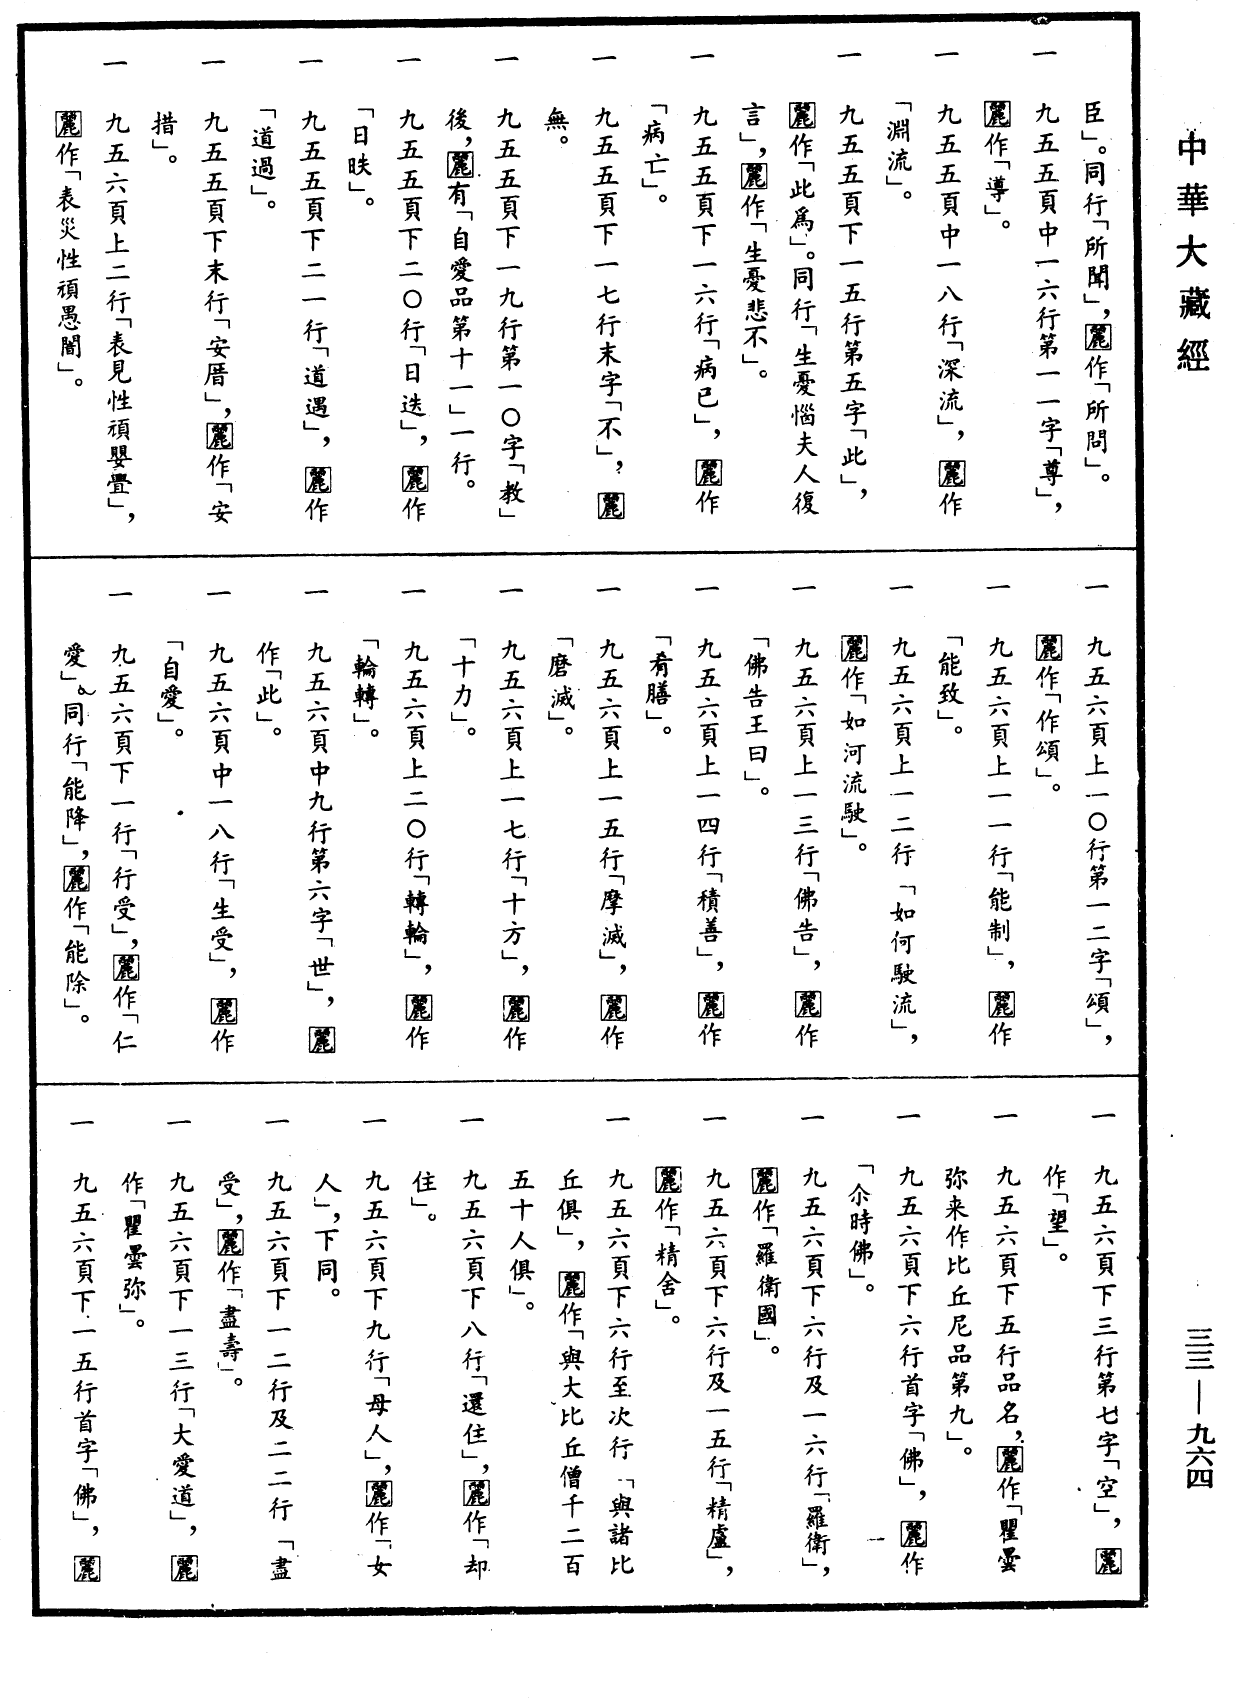 中華大藏經
臣」。同行「所聞」，麗作「所問」。
一 九五五頁中一六行第一一字「尊」，
麗作「導」。
一 九五五頁中一八行「深流」，麗作
「淵流」。
一 九五五頁下一五行第五字「此」，
麗作「此爲」。同行「生憂惱夫人復
言」，麗作「生憂悲不」。
一 九五五頁下一六行「病已」，麗作
「病亡」。
一 九五五頁下一七行末字「不」，麗
無。
一 九五五頁下一九行第一〇字「教」
後，麗有「自愛品第十一」一行。
一 九五五頁下二〇行「日迭」，麗作
「日昳」。
一 九五五頁下二一行「道遇」，麗作
「道過」。
一 九五五頁下末行「安厝」，麗作「安
措」。
一 九五六頁上二行「表見性頑嬰疊」，
麗作「表災性頑愚闇」。
一 九五六頁上一〇行第一二字「頌」，
麗作「作頌」。
一 九五六頁上一一行「能制」，麗作
「能致」。
一 九五六頁上一二行「如何駛流」，
麗作「如河流駛」。
一 九五六頁上一三行「佛告」，麗作
「佛告王曰」。
一 九五六頁上一四行「積善」，麗作
「肴膳」。
一 九五六頁上一五行「摩滅」，麗作
「磨滅」。
一 九五六頁上一七行「十方」，麗作
「十力」。
一 九五六頁上二〇行「轉輪」，麗作
「輪轉」。
一 九五六頁中九行第六字「世」，麗
作「此」。
一 九五六頁中一八行「生受」，麗作
「自愛」。
一 九五六頁下一行「行受」，麗作「仁
愛」。同行「能降」，麗作「能除」。
一 九五六頁下三行第七字「空」，麗
作「望」。
一 九五六頁下五行品名，麗作「瞿曇
弥来作比丘尼品第九」。
一 九五六頁下六行首字「佛」，麗作
「尒時佛」。
一 九五六頁下六行及一六行「羅衛」，
麗作「羅衛國」。
一 九五六頁下六行及一五行「精盧」，
麗作「精舍」。
一 九五六頁下六行至次行「與諸比
丘俱」，麗作「與大比丘僧千二百
五十人俱」。
一 九五六頁下八行「還住」，麗作「却
住」。
一 九五六頁下九行「母人」，麗作「女
人」，下同。
一 九五六頁下一二行及二二行「盡
受」，麗作「盡壽」。
一 九五六頁下一三行「大愛道」，麗
作「瞿曇弥」。
一 九五六頁下一五行首字「佛」，麗
三三—九六四